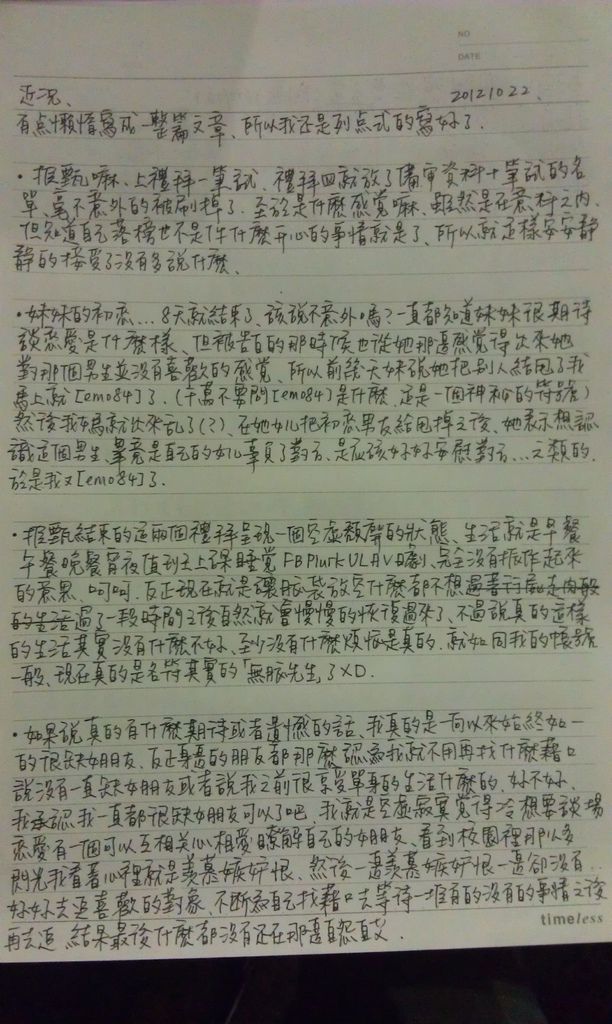 NO
DATE
近況、 20121022、
有点懶惰寫成一整篇文章、所以我还是列点式的寫好了.
・推甄嘛、上禮拜一筆試、禮拜四就放了備審資料+筆試的名
單、毫不意外的被刷掉了、至於是什麼感覺嘛、雖然是在意料之內、
但知道自己落榜也不是件什麼开心的事情就是了、所以就这樣安安靜
靜的接受了沒有多說什麼、
・妹妹的初恋...8天就結束了、該說不意外嗎?一直都知道妹妹很期待
談恋愛是什麼樣、但被告白的那時候也從她那邊感覺得出來她
對那個男生並沒有喜歡的感覺、所以前幾天妹說她把別人給甩了我
馬上就[emo84]了、(千萬不要問[emo84]是什麼、这是一個神秘的符號)
然後我媽就出來乱了(?)、在她女儿把初恋男友給甩掉之後、她表示想認
識这個男生、畢竟是自己的女儿辜負了對方、是应該好好安慰對方...之類的、
於是我又[emo84]了.
・推甄結束的这兩個禮拜呈現一個空虛頹廢的狀態、生活就是早餐
午餐晚餐宵夜值到土上課睡覺FB Plurk UL AV 日劇、完全沒有振作起來
的意思、呵呵、反正現在就是讓腦袋放空什麼都不想過著行屍走肉般
的生活過了一段時間之後自然就會慢慢的恢復過來了、不過說真的这樣
的生活其實沒有什麼不好、至少沒有什麼煩惱是真的、就如同我的帳號
一般、現在真的是名符其實的「無腦先生」了XD.
・如果說真的有什麼期待或者遺憾的話、我真的是一向以來始終如一
的很缺女朋友、反正身边的朋友都那麼認為我就不用再找什麼藉口
說沒有一直缺女朋友或者說我之前很享受單身的生活什麼的、好不好、
我承認我一直都很缺女朋友可以了吧、我就是空虛寂寞覺得冷想要談場
恋愛有一個可以互相关心相愛瞭解自己的女朋友、看到校園裡那么多
閃光我看著心裡就是羨慕嫉妒恨、然後一邊羨慕嫉妒恨一邊卻沒有...
好好去追喜歡的對象、不断為自己找藉口去等待一堆有的沒有的事情之後
再去追、結果最後什麼都沒有还在那邊自怨自艾.
timeless